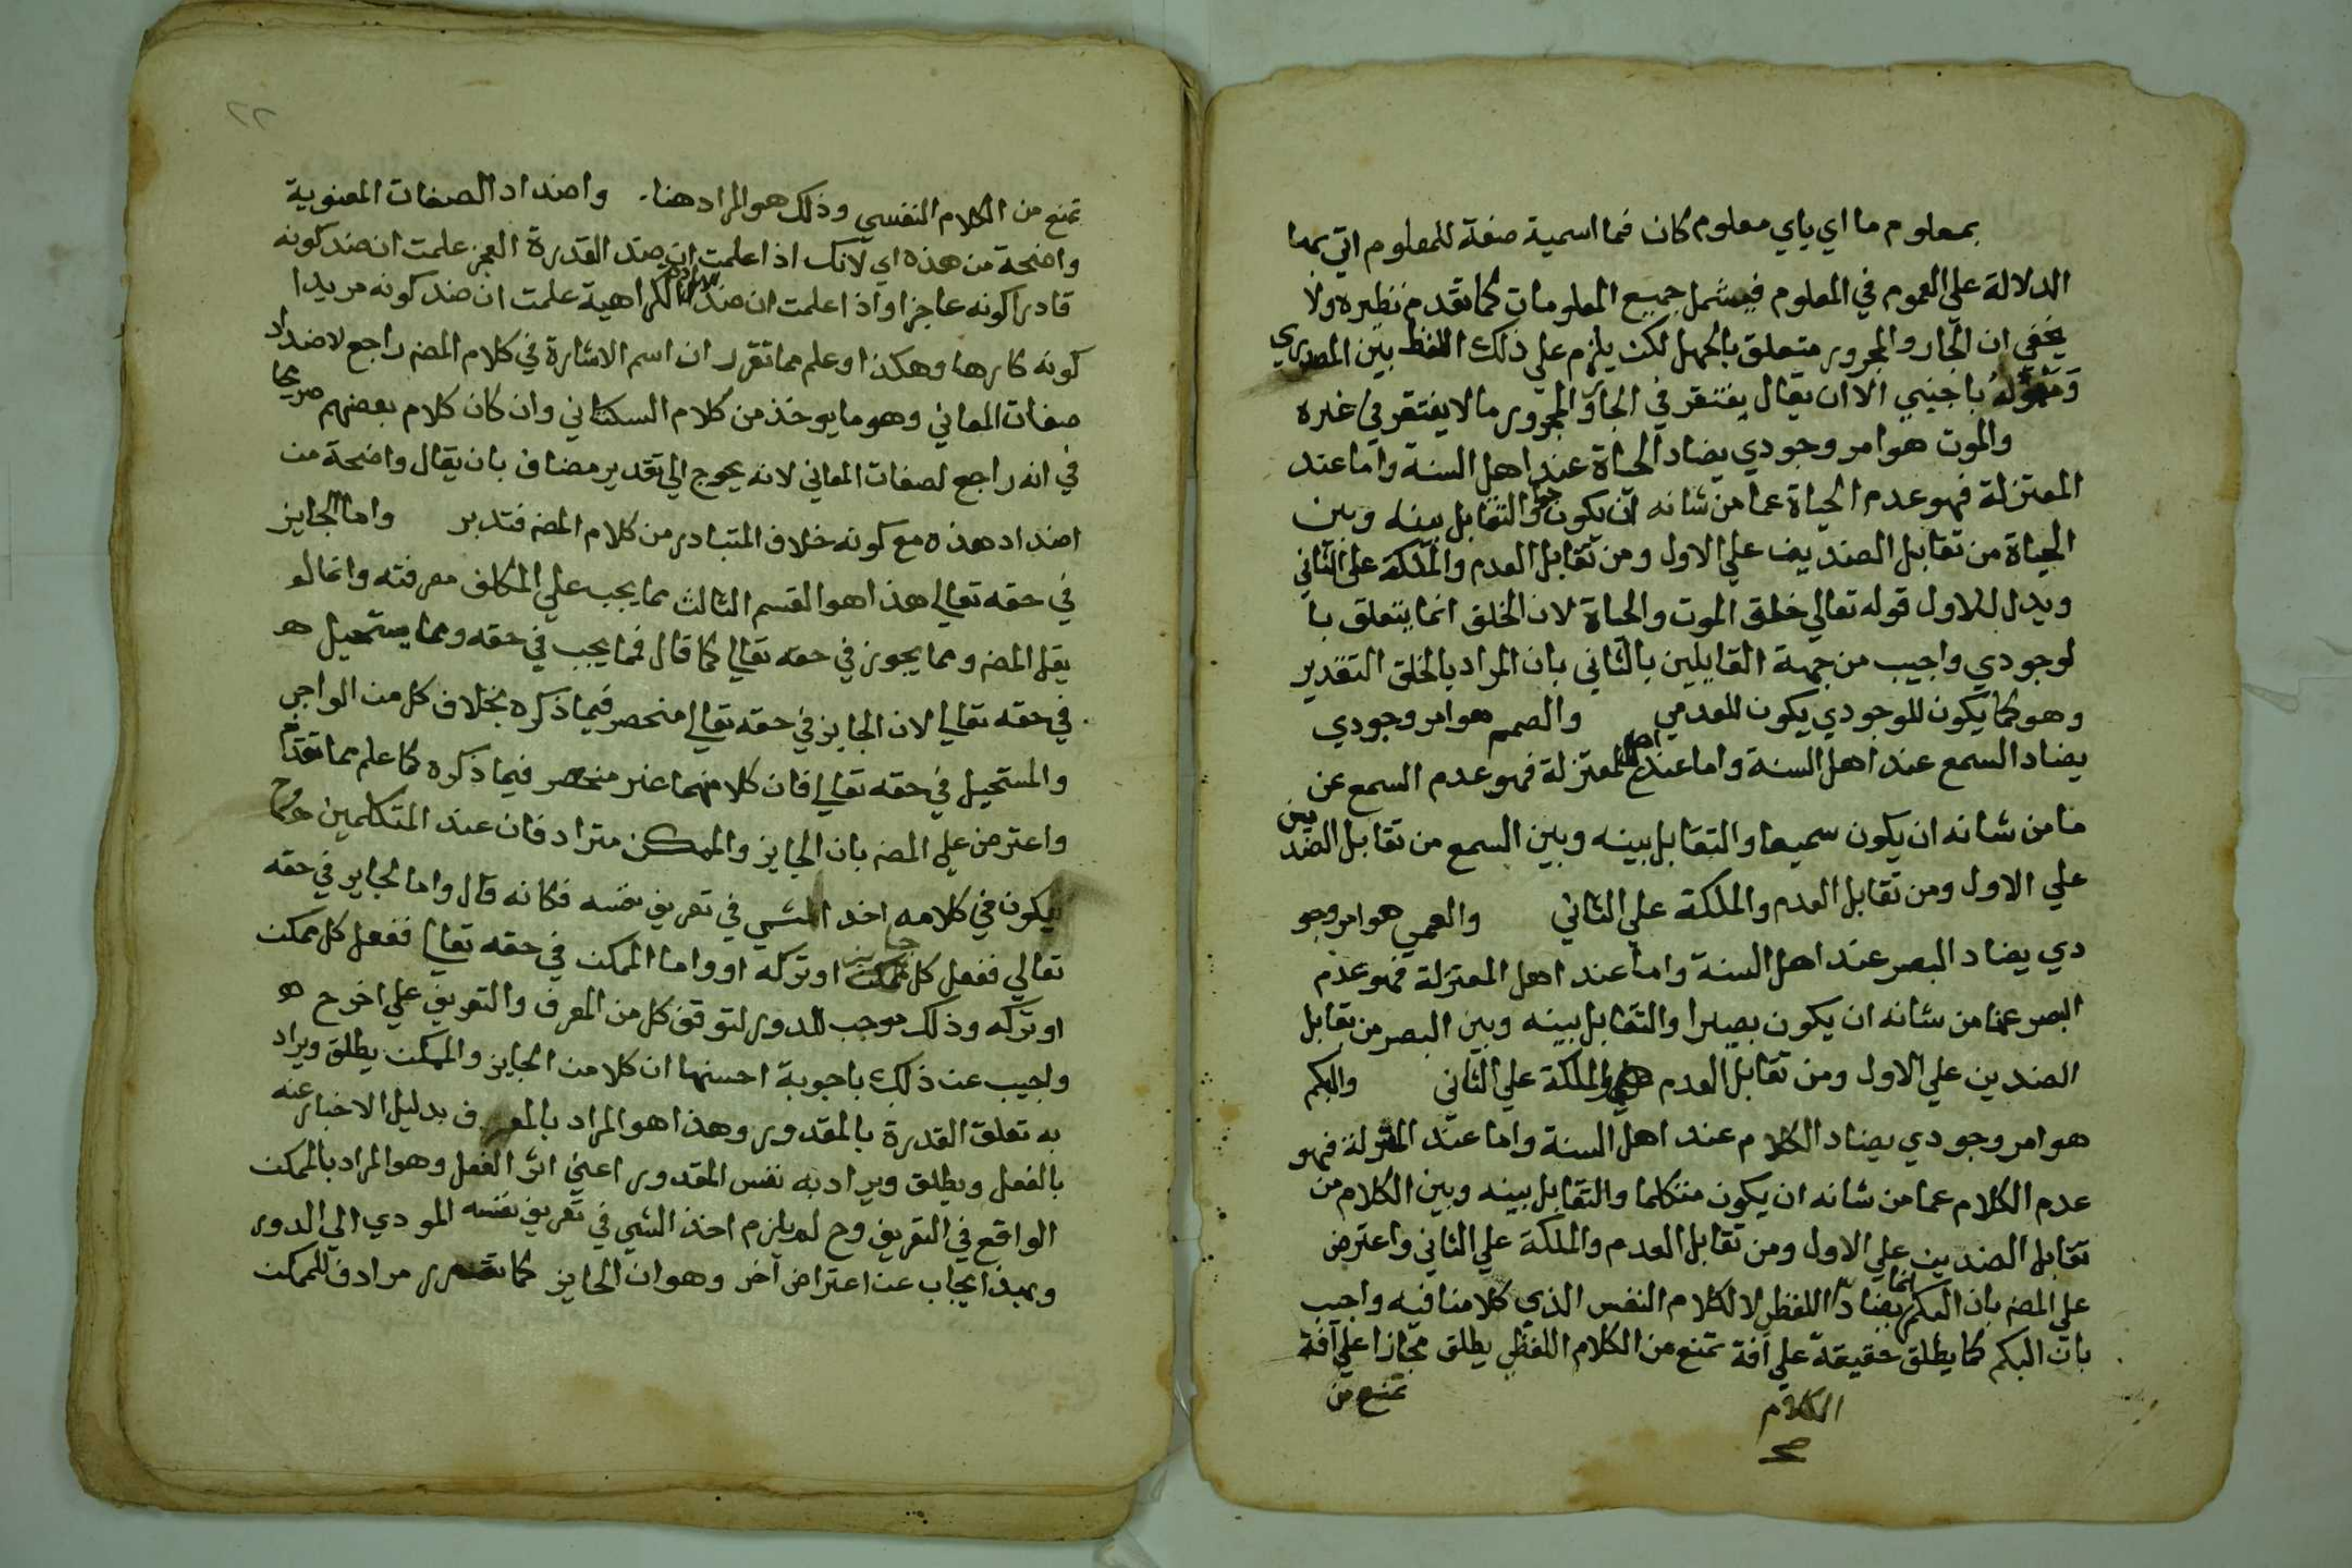 بمعلوم ما اي باي معلوم كان فما اسمية صفة للمعلوم اتي بها
الدلالة علي العموم في المعلوم فيشمل جميع المعلومات كما تقدم نظيره ولا
يخفي ان الجار والمجرور متعلق بالجهل لكن يلزم علي ذلك الفصل بين المصدري
ومعموله باجنبي الا ان يقال يغتفر في الجار والمجرور ما لا يغتفر في غيره
والموت هو امر وجودي يضاد الحياة عند اهل السنة واما عند
المعتزلة فهو عدم الحياة عما من شانه ان يكون حيا والتقابل بينه وبين
الحياة من تقابل الضديف علي الاول ومن تقابل العدم والملكة علي الثاني
ويدل للاول قوله تعالي خلق الموت والحياة لان الخلق انما يتعلق با
لوجودي واجيب من جهة القايلين بالثاني بان المراد بالخلق التقدير
وهو كما يكون للوجودي يكون للعدمي والصمم هو امر وجودي
يضاد السمع عند اهل السنة واما عند اهل المعتزلة فهو عدم السمع عن
ما من شانه ان يكون سميعا والتقابل بينه وبين السمع من تقابل الضدين
علي الاول ومن تقابل العدم والملكة علي الثاني والعمي هو امر وجو
دي يضاد البصر عند اهل السنة واما عند اهل المعتزلة فهو عدم
البصر عما من شانه ان يكون بصيرا والتقابل بينه وبين البصر من تقابل
الضدين علي الاول ومن تقابل العدم والملكة علي الثاني والبكم
هو امر وجودي يضاد الكلام عند اهل السنة واما عند المعتزلة فهو
عدم الكلام عما من شانه ان يكون متكلما والتقابل بينه وبين الكلام من
تقابل الضدين علي الاول ومن تقابل العدم والملكة علي الثاني واعترض
علي المصـ بان البكم انما يضاد الكلام اللفظي لا الكلام النفسي الذي كلامنا فيه واجيب
بان البكم كما يطلق حقيقة علي آفة تمنع من الكلام اللفظي يطلق مجازا علي آفة
تمنع من
الكلام
صح
٢٢
تمنع من الكلام النفسي وذلك هو المراد هنا. واضداد الصفات المعنوية
واضحة من هذه اي لانك اذا علمت ان ضد القدرة العجز علمت ان ضد كونه
قادرا كونه عاجزا واذا علمت ان ضد الارادة الكراهية علمت ان ضد كونه مريدا
كونه كارها وهكذا وعلم مما تقرر ان اسم الاشارة في كلام المصـ راجع لاضداد
صفات المعاني وهو ما يوخذ من كلام السكتاني وان كان كلام بعضهم صريحا
في انه راجع لصفات المعاني لانه يحوج الي تقدير مضاف بان يقال واضحة من
اضداد هذه مع كونه خلاف المتبادر من كلام المصـ فتدبر واما الجايز
في حقه تعالي هذا هو القسم الثالث مما يجب علي المكلف معرفته وانما لم
يقل المصـ ومما يجوز في حقه تعالي كما قال فما يجب في حقه ومما يستحيل هـ
في حقه تعالي لان الجايز في حقه تعالي منحصر فيما ذكره بخلاف كل من الواجب
والمستحيل في حقه تعالي فان كلا منهما غير منحصر فيما ذكره كما علم مما تقدم
واعترض علي المصـ بان الجايز والممكن مترادفان عند المتكلمين وح
فيكون في كلامه اخذ الشي في تعريف نفسه فكانه قال واما الجايز في حقه
تعالي ففعل كل جايز او تركه او واما الممكن في حقه تعالي ففعل كل ممكن
او تركه وذلك موجب للدور لتوقف كل من المعرف والتعريف علي اخر ح هـ
واجيب عن ذلك باجوبة احسنها ان كلا من الجايز والممكن يطلق ويراد
به تعلق القدرة بالمقدور وهذا هو المراد بالمعرف بدليل الاخبار عنه
بالفعل ويطلق ويراد به نفس المقدور اعني اثر الفعل وهو المراد بالممكن
الواقع في التعريف وح لم يلزم اخذ الشي في تعريف نفسه المودي الي الدور
وبهذا يجاب عن اعتراض آخر وهو ان الجايز كما تقرر مرادف للممكن